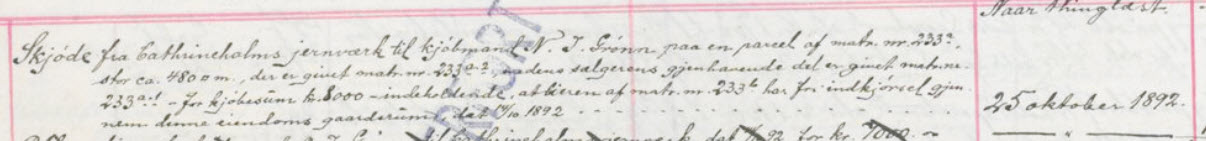 Naar thinglæst.
Skjöde fra Cathrineholms jernværk til kjöbmand N. J. Grönn paa en parcel af matr. nr. 233ᵃ,
stor ca. 4800 m., der er givet matr. nr. 233ᵃ⁻², medens sælgerens gjenhavende del er givet matr. nr.
233ᵃ⁻¹ – for kjöbesum kr. 8000 – indeholdende, at eieren af matr. nr. 233ᵇ har fri indkjörsel gjen-
nem denne eiendoms gaardsrum, dat /10 1892
25 oktober 1892.
til Cathrineholms jernværk, dat 92 for kr. 7000. –